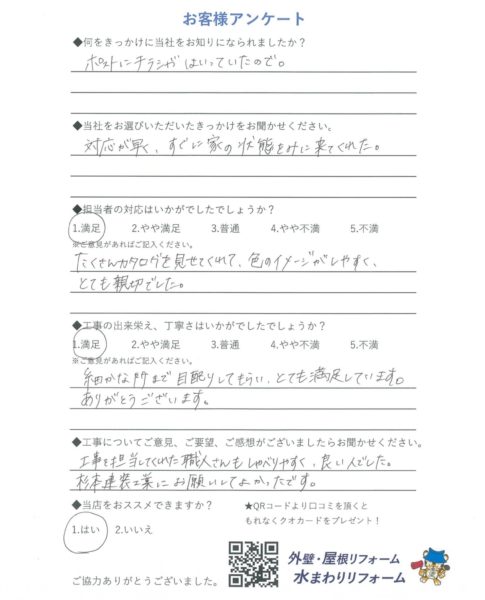 お客様アンケート
◆何をきっかけに当社をお知りになられましたか？
ポストにチラシがはいっていたので。
◆当社をお選びいただいたきっかけをお聞かせください。
対応が早く、すぐに家の状態をみに来てくれた。
◆担当者の対応はいかがでしたでしょうか？
1.満足 2.やや満足 3.普通 4.やや不満 5.不満
※ご意見があればご記入ください。
たくさんカタログを見せてくれて、色のイメージがしやすく、
とても親切でした。
◆工事の出来栄え、丁寧さはいかがでしたでしょうか？
1.満足 2.やや満足 3.普通 4.やや不満 5.不満
※ご意見があればご記入ください。
細かな所まで目配りしてもらい、とても満足しています。
ありがとうございます。
◆工事についてご意見、ご要望、ご感想がございましたらお聞かせください。
工事を担当してくれた職人さんもしゃべりやすく、良い人でした。
杉本建装工業にお願いしてよかったです。
◆当店をおススメできますか？
1.はい 2.いいえ
★QRコードより口コミを頂くと
もれなくクオカードをプレゼント！
外壁・屋根リフォーム
水まわりリフォーム
ご協力ありがとうございました。